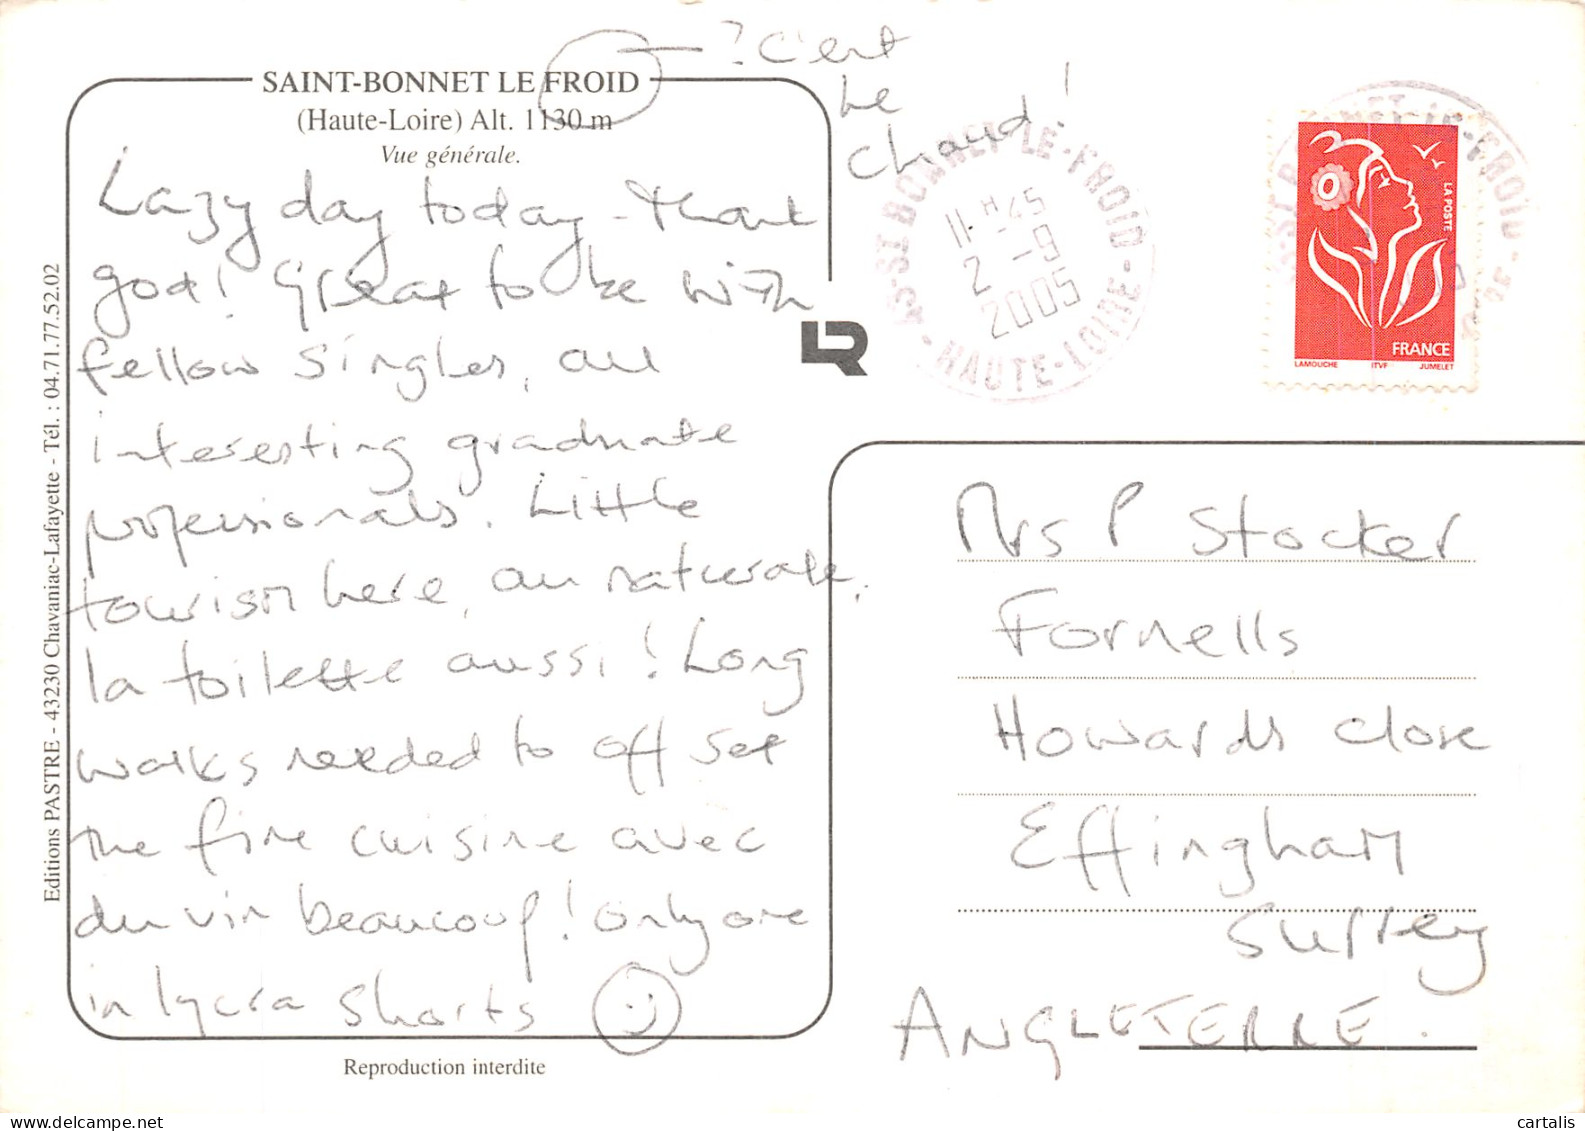 SAINT-BONNET LE FROID
(Haute-Loire) Alt. 1130 m
Vue générale.
? c'est
le
chaud!
Lazy day today - thank
god! Great to be with
fellow singles, all
interesting graduate
professionals. Little
tourism here, au naturale,
la toilette aussi! Long
walks needed to off set
the fine cuisine avec
du vin beaucoup! Only one
in lycra shorts
Reproduction interdite
Editions PASTRE - 43230 Chavaniac-Lafayette - Tél. : 04.71.77.52.02
LR
43-ST BONNET-LE-FROID
11 H 45
2 -9
2005
- HAUTE-LOIRE -
LA POSTE
FRANCE
LAMOUCHE ITVF JUMELET
Mrs P Stocker
Fornells
Howards Close
Effingham
Surrey
ANGLETERRE.
cartalis